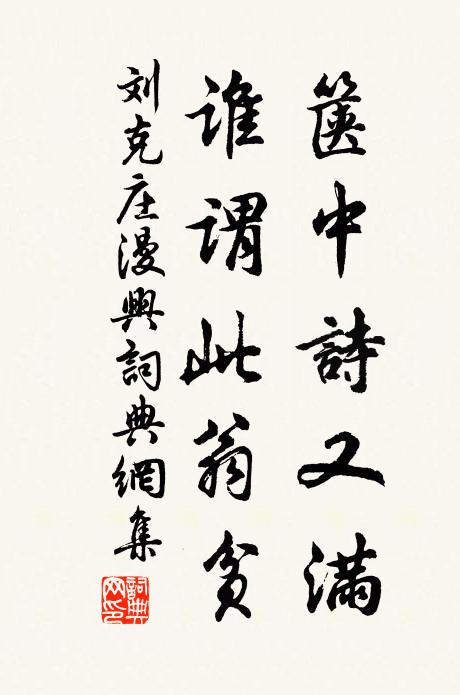 篋中詩又滿
誰謂此翁貧
刘克庄漫興詞典網集
詞典網印